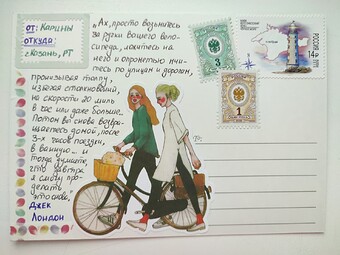 от: Карины
откуда:
г. Казань, РТ
"Ах, просто возьмитесь
за ручки вашего вело-
сипеда, ложитесь на
него и опрометью мчи-
тесь по улицам и дорогам,
пронизывая толпу,
избегая столкновений,
на скорости 20 миль
в час или даже больше...
Потом вы снова возвра-
щаетесь домой, после
3-х часов поездки,
в ванную... и
тогда думаете,
что завтра
я смогу про-
делать
это снова."
Джек
Лондон
3
1
РОССИЯ
14